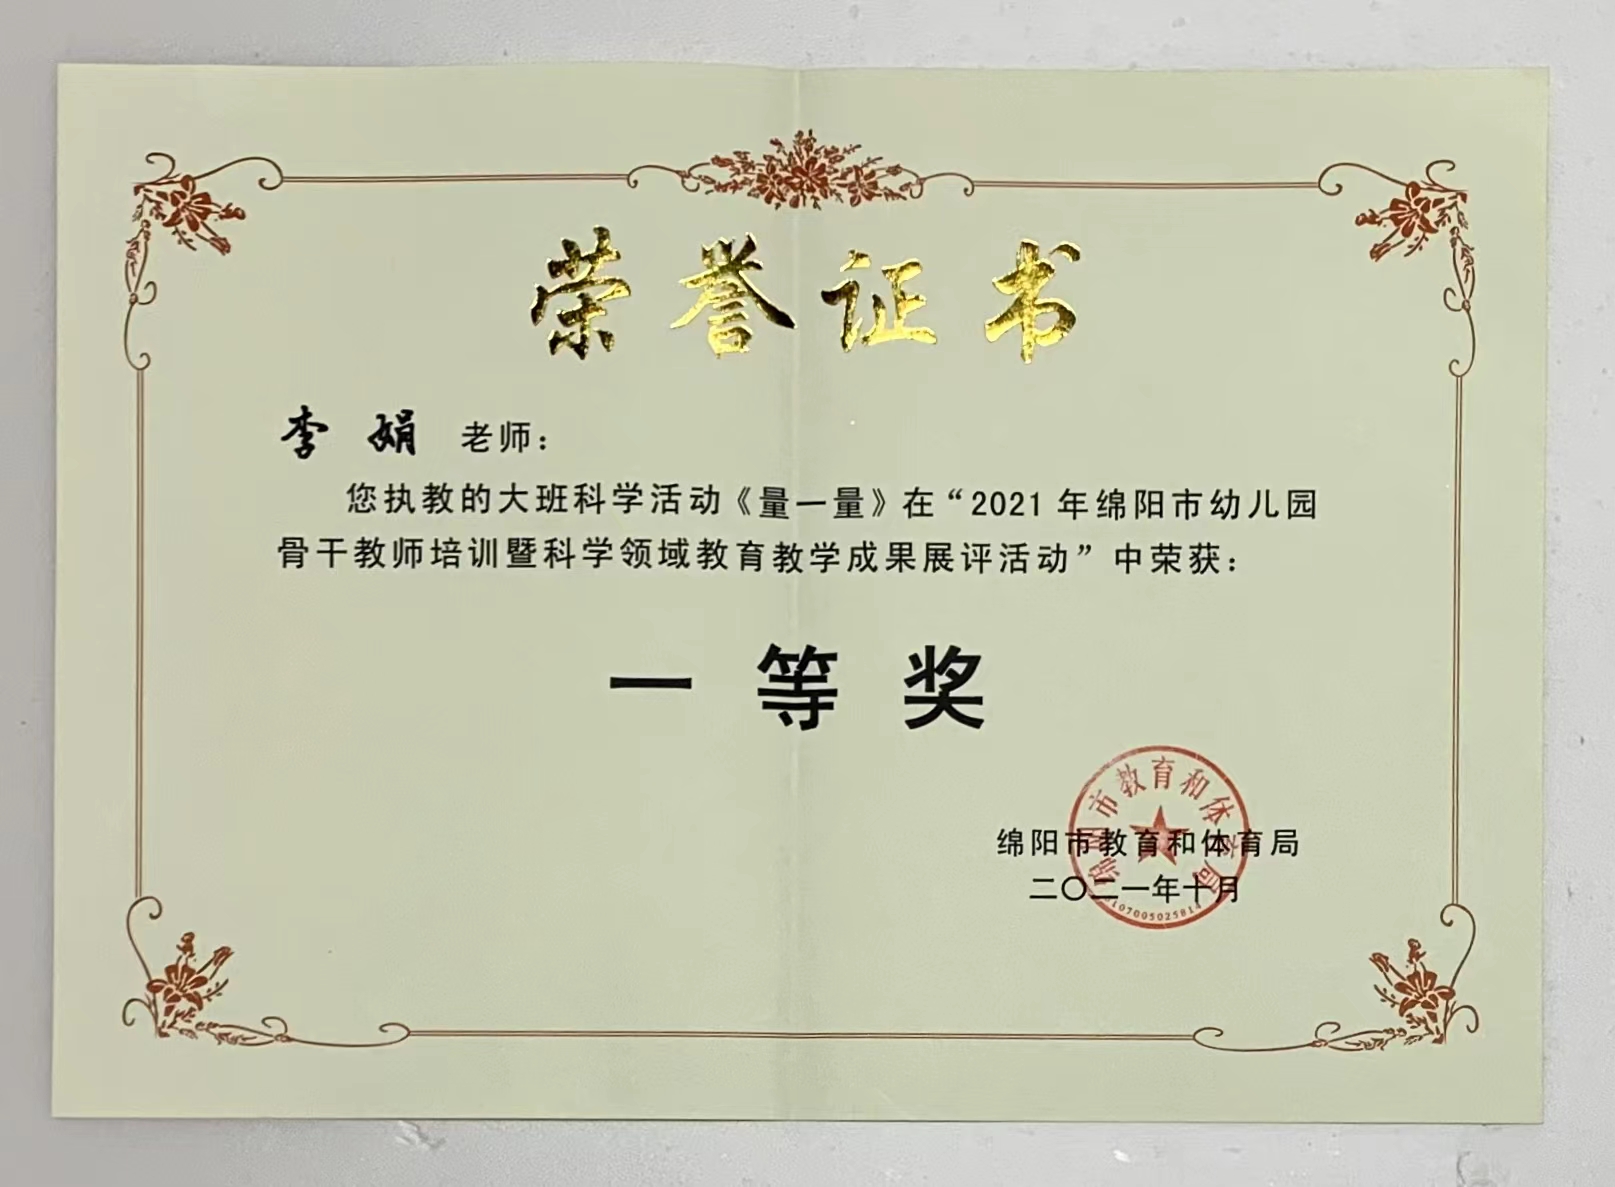 荣誉证书
李娟 老师：
您执教的大班科学活动《量一量》在“2021年绵阳市幼儿园
骨干教师培训暨科学领域教育教学成果展评活动”中荣获：
一等奖
绵阳市教育和体育局
二〇二一年十月
绵阳市教育和体育局
5107005025814